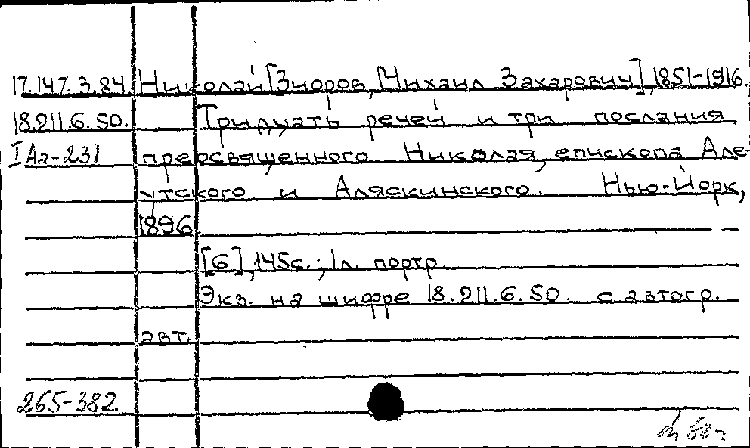 17.147.3.84 Николай [Зиоров, Михаил Захарович], 1851-1916.
18.211.6.50. Тридцать речей и три послания
I Аг-231 преосвященного Николая, епископа Але-
утского и Аляскинского. Нью-Йорк,
1896
[6], 145с.; 1л. портр.
Экз. на шифре 18.211.6.50 с автогр.
авт.
265-382